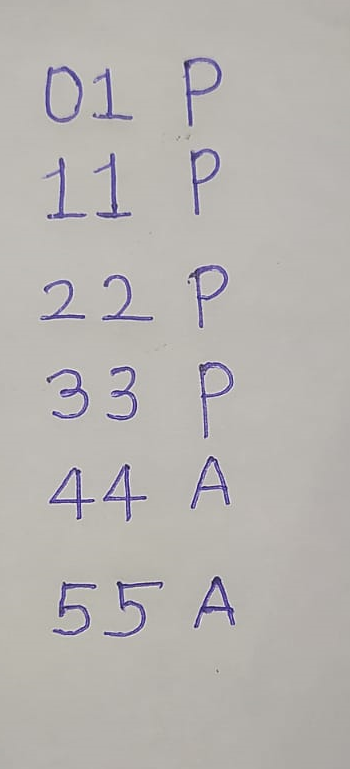 01 P
11 P
22 P
33 P
44 A
55 A